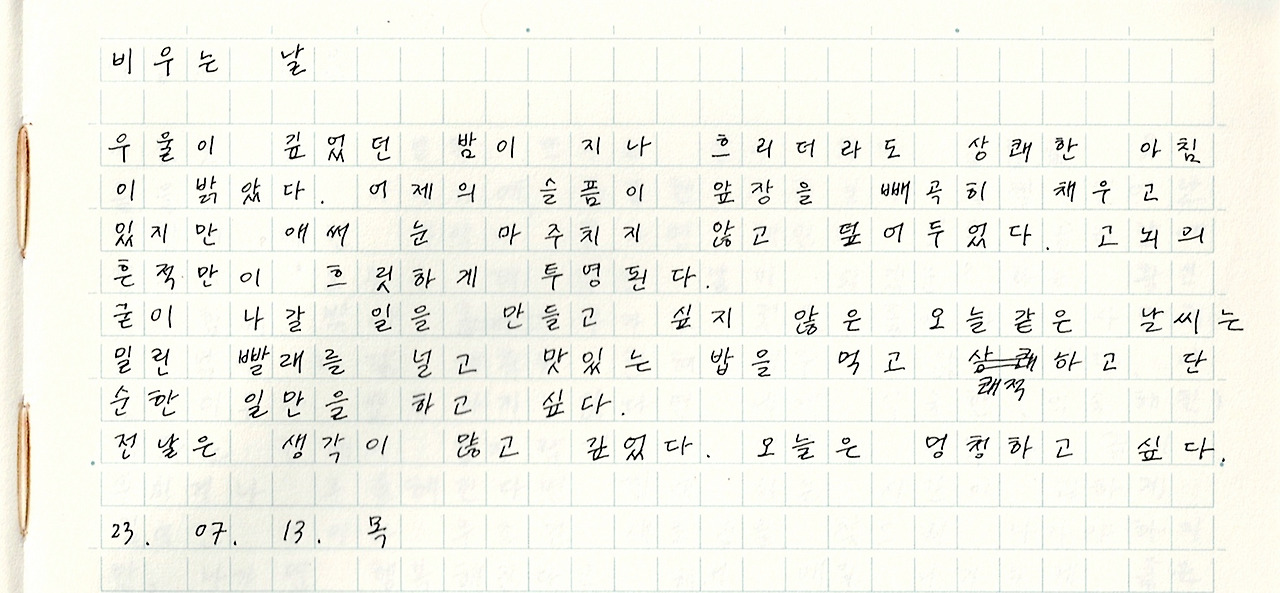 비우는 날
우울이 깊었던 밤이 지나 흐리더라도 상쾌한 아침
이 밝았다. 어제의 슬픔이 앞장을 빼곡히 채우고
있지만 애써 눈 마주치지 않고 덮어두었다. 고뇌의
흔적만이 흐릿하게 투영된다.
굳이 나갈 일을 만들고 싶지 않은 오늘 같은 날씨는
밀린 빨래를 널고 맛있는 밥을 먹고 상쾌하고 단
쾌적
순한 일만을 하고 싶다.
전날은 생각이 많고 깊었다. 오늘은 멍청하고 싶다.
23. 07. 13. 목